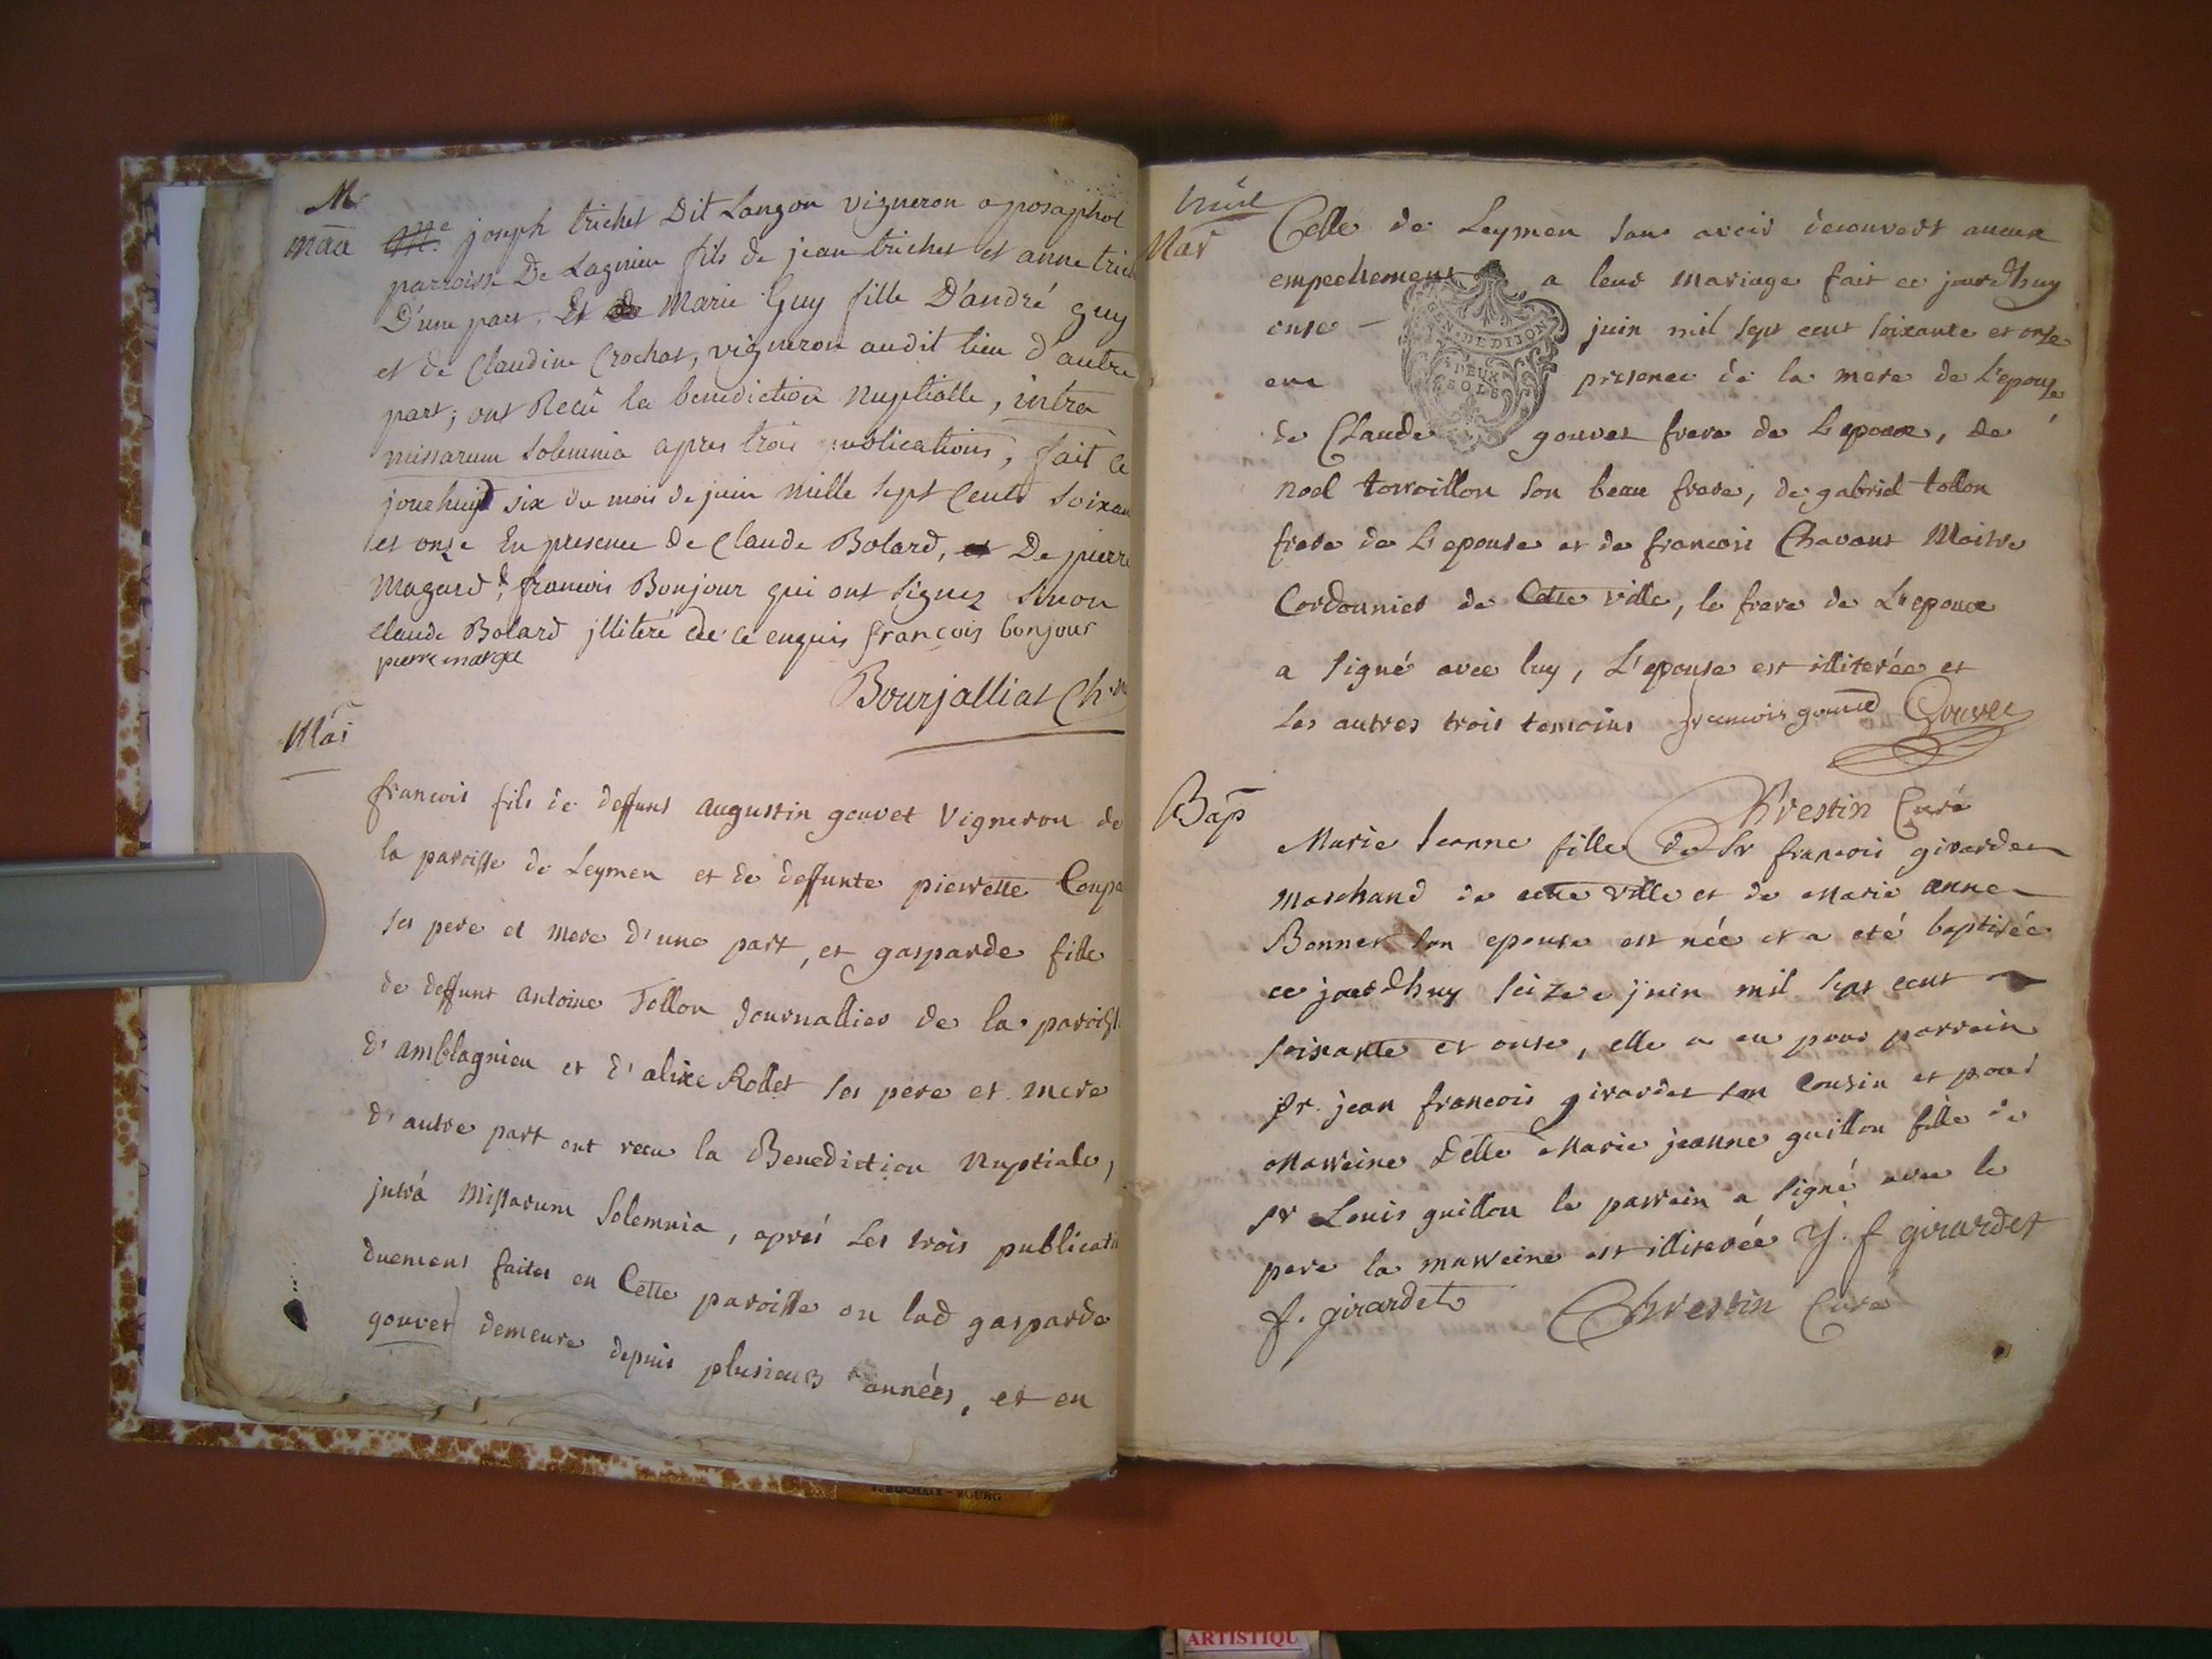 M
maa
joseph trichet Dit Langon vigneron a posaphol
parroisse De Lagnieu fils de jean trichet et anne trich
D'une part. Et Marie Guy fille D'andré guy
et de Claudine Crochat, vigneron audit lieu d'autre
part; ont Recû la benediction Nuptialle, intra
missarum solemnia apres trois publications, fait ce
jourhuy six du mois de juin mille sept Cents soixan
et onze En presence de Claude Bolard, De pierre
Magard & francois Bonjour qui ont signez sinon
Claude Bolard jlliteré de ce enquis françois bonjour
pierre margar
Bourjalliat Ch.
Mar
francois fils de deffunt augustin gouvet Vigneron de
la paroisse de Leymen et de deffunte pierrette Coupa
ses pere et mere d'une part, et gasparde fille
de deffunt antoine Tollon Journallier de la paroiss
d'amblagnieu et d'alixe Rollet ses pere et mere
d'autre part ont recu la Benediction Nuptiale,
jntrá Missarum Solemnia, aprés Les trois publicati
duement faites en Cette paroisse ou lad gasparde
gouvet demeure depuis plusieurs années, et en
Mar
Celle de Leymen sans avoir decouvert aucun
empechement a leur mariage fait ce jourdhuy
onse juin mil sept cent soixante et onze
en presence de la mere de L'epouse,
GEN. DE DIJON
DEUX SOLS
de Claude gouvet frere de L'epoux, de
noel torvoillon son beau frere, de gabriel tollon
frere de L'epouse et de francois Chavant Maitre
Cordonnier de Cette ville, le frere de L'epoux
a signé avec luy, L'epouse est illiterée et
Les autres trois temoins francois gouvet Gouvet
Chrestin Curé
Bap
Marie Jeanne fille de Sr francois girardet
Marchand de cette ville et de Marie anne
Bonnet son epouse est née et a eté baptisée
ce jourdhuy seize juin mil sept cent
soixante et onse, elle a eu pour parrain
sr. jean francois girardet son Cousin et pour
Marreine Delle Marie jeanne guillon fille de
sr Louis guillon le parrein a signé avec le
pere la marreine est illiterée J. f girardet
f. girardet Chrestin Curé
ARTISTIQU